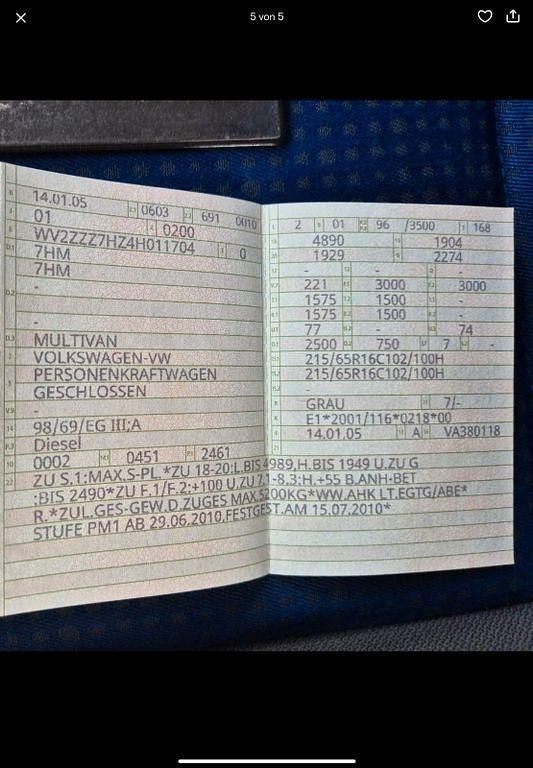 5 von 5
14.01.05 0603 691 0010
01 0200
WV2ZZZ7HZ4H011704 0
7HM
7HM
-
-
MULTIVAN
VOLKSWAGEN-VW
PERSONENKRAFTWAGEN
GESCHLOSSEN
-
98/69/EG III;A
Diesel
0002 0451 2461
2 01 96 /3500 168
4890 1904
1929 2274
- - -
221 3000 3000
1575 1500 -
1575 1500 -
77 - 74
2500 750 7 -
215/65R16C102/100H
215/65R16C102/100H
-
GRAU 7/-
E1*2001/116*0218*00
14.01.05 A VA380118
ZU S.1:MAX.S-PL.*ZU 18-20:L.BIS 4989,H.BIS 1949 U.ZU G
:BIS 2490*ZU F.1/F.2:+100 U.ZU 7.1-8.3:H.+55 B.ANH-BET
R.*ZUL.GES-GEW.D.ZUGES MAX.5200KG*WW.AHK LT.EGTG/ABE*
STUFE PM1 AB 29.06.2010,FESTGEST.AM 15.07.2010*